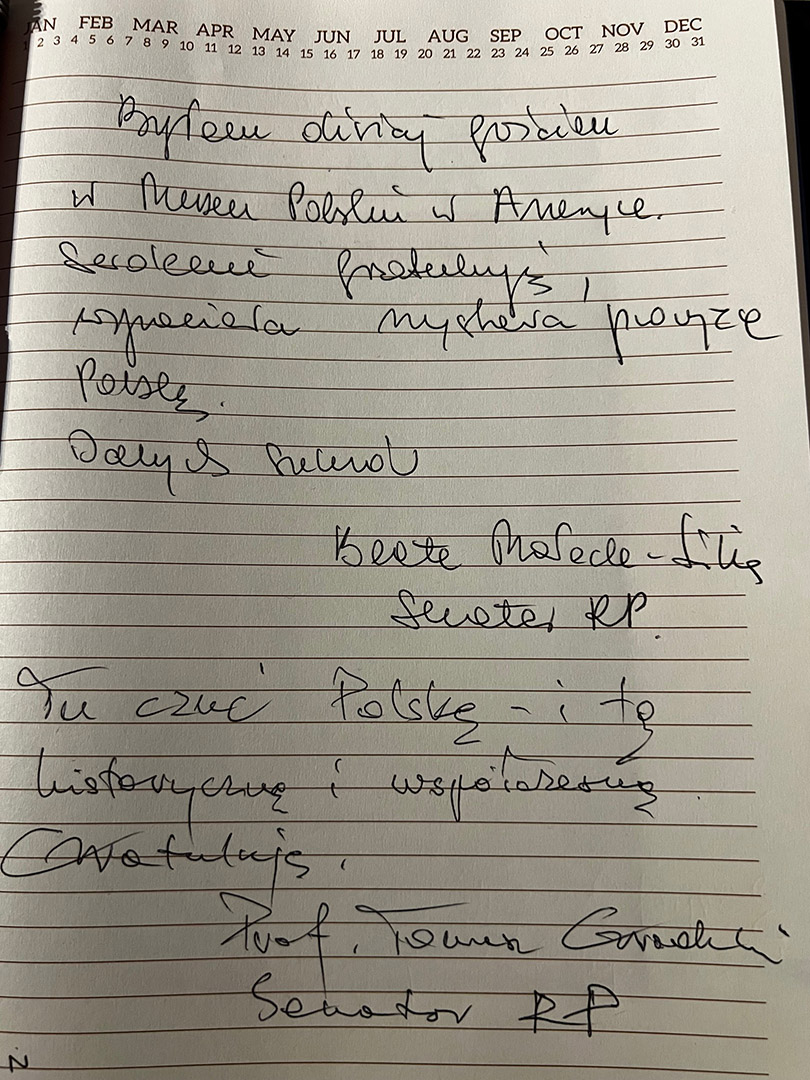 JAN FEB MAR APR MAY JUN JUL AUG SEP OCT NOV DEC
1 2 3 4 5 6 7 8 9 10 11 12 13 14 15 16 17 18 19 20 21 22 23 24 25 26 27 28 29 30 31
Byłem dzisiaj gościem
w Muzeum Polskim w Ameryce.
Serdecznie gratuluję,
wspaniała wystawa
Polskę.
Beata Małecka-Libera
Senator RP.
Tu czuć Polskę - i tę
historyczną i współczesną.
Gratuluję.
Prof. Tomasz Grodzki
Senator RP